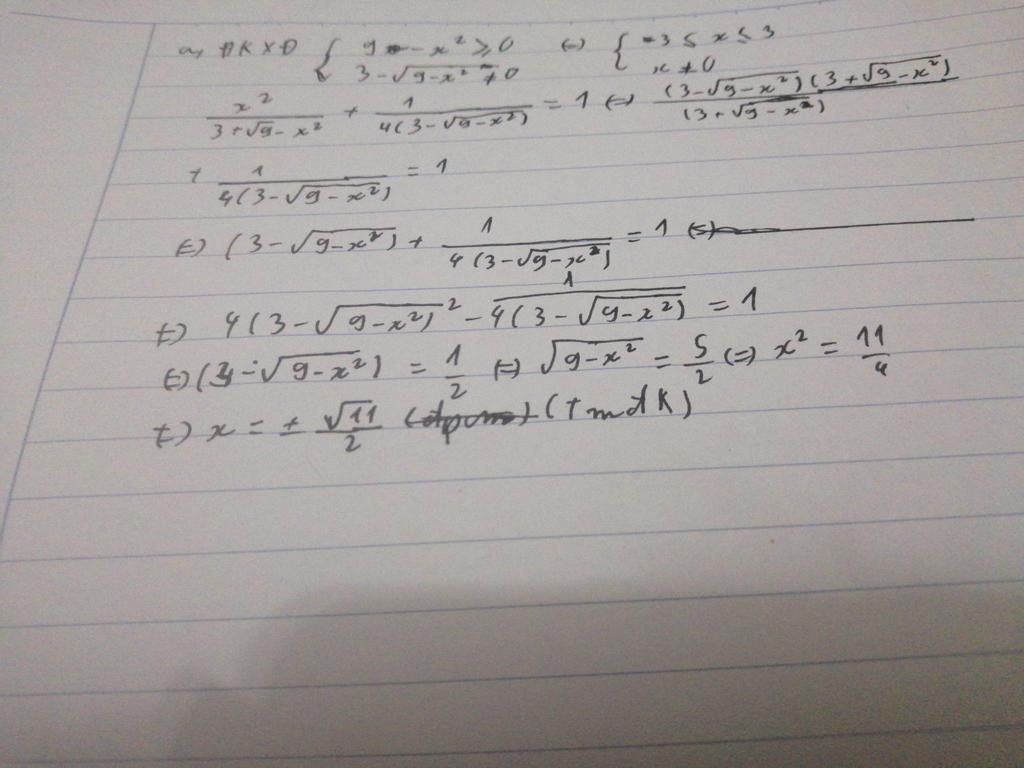 a, ĐKXĐ { 9 - x² ≥ 0 (=) { -3 ≤ x ≤ 3
3 - √(9-x²) ≠ 0 x ≠ 0
x²/(3+√(9-x²)) + 1/(4(3-√(9-x²))) = 1 (=) (3-√(9-x²))(3+√(9-x²))/(3+√(9-x²))
+ 1/(4(3-√(9-x²))) = 1
(=) (3-√(9-x²)) + 1/(4(3-√(9-x²))) = 1 (=)
(=) 4(3-√(9-x²))² - 1/(4(3-√(9-x²))) = 1
(=) (3-√(9-x²)) = 1/2 (=) √(9-x²) = 5/2 (=) x² = 11/4
(=) x = ± √11/2 (tmđK)